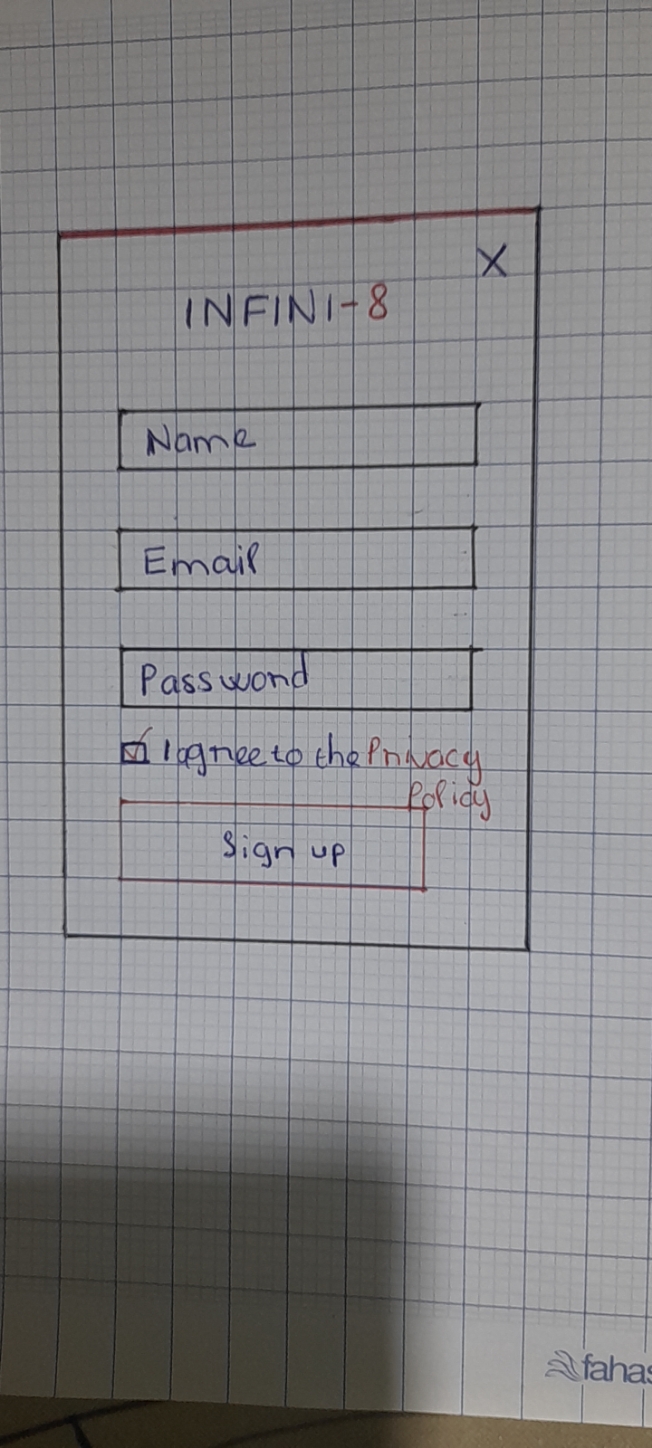 X
INFINI-8
Name
Email
Password
I agree to the Privacy
Policy
Sign up
fahas